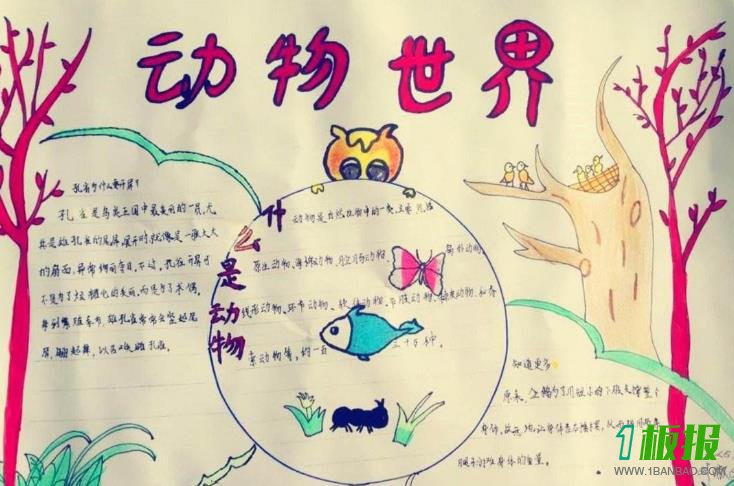 动物世界
孔雀为什么要开屏？
孔雀是鸟类王国中最美丽的一员，尤
其是雄孔雀的尾屏展开时，就像是一张大大
的扇面，异常绚丽夺目。不过，孔雀开屏可
不是为了炫耀它的美丽，而是为了求偶。
每到繁殖季节，雄孔雀常常会竖起尾
屏，翩翩起舞，以吸引雌孔雀。
什么是动物
动物是自然界物中的一类，主要
原生动物、海绵动物、腔肠动物、扁形动物
线形动物、环节动物、软体动物、节肢动物、棘皮动物和脊
索动物等，约一百三十万种。
知道更多
原来，企鹅为了用短小的下肢支撑整个
身体
1板报
WWW.1BANBAO.COM